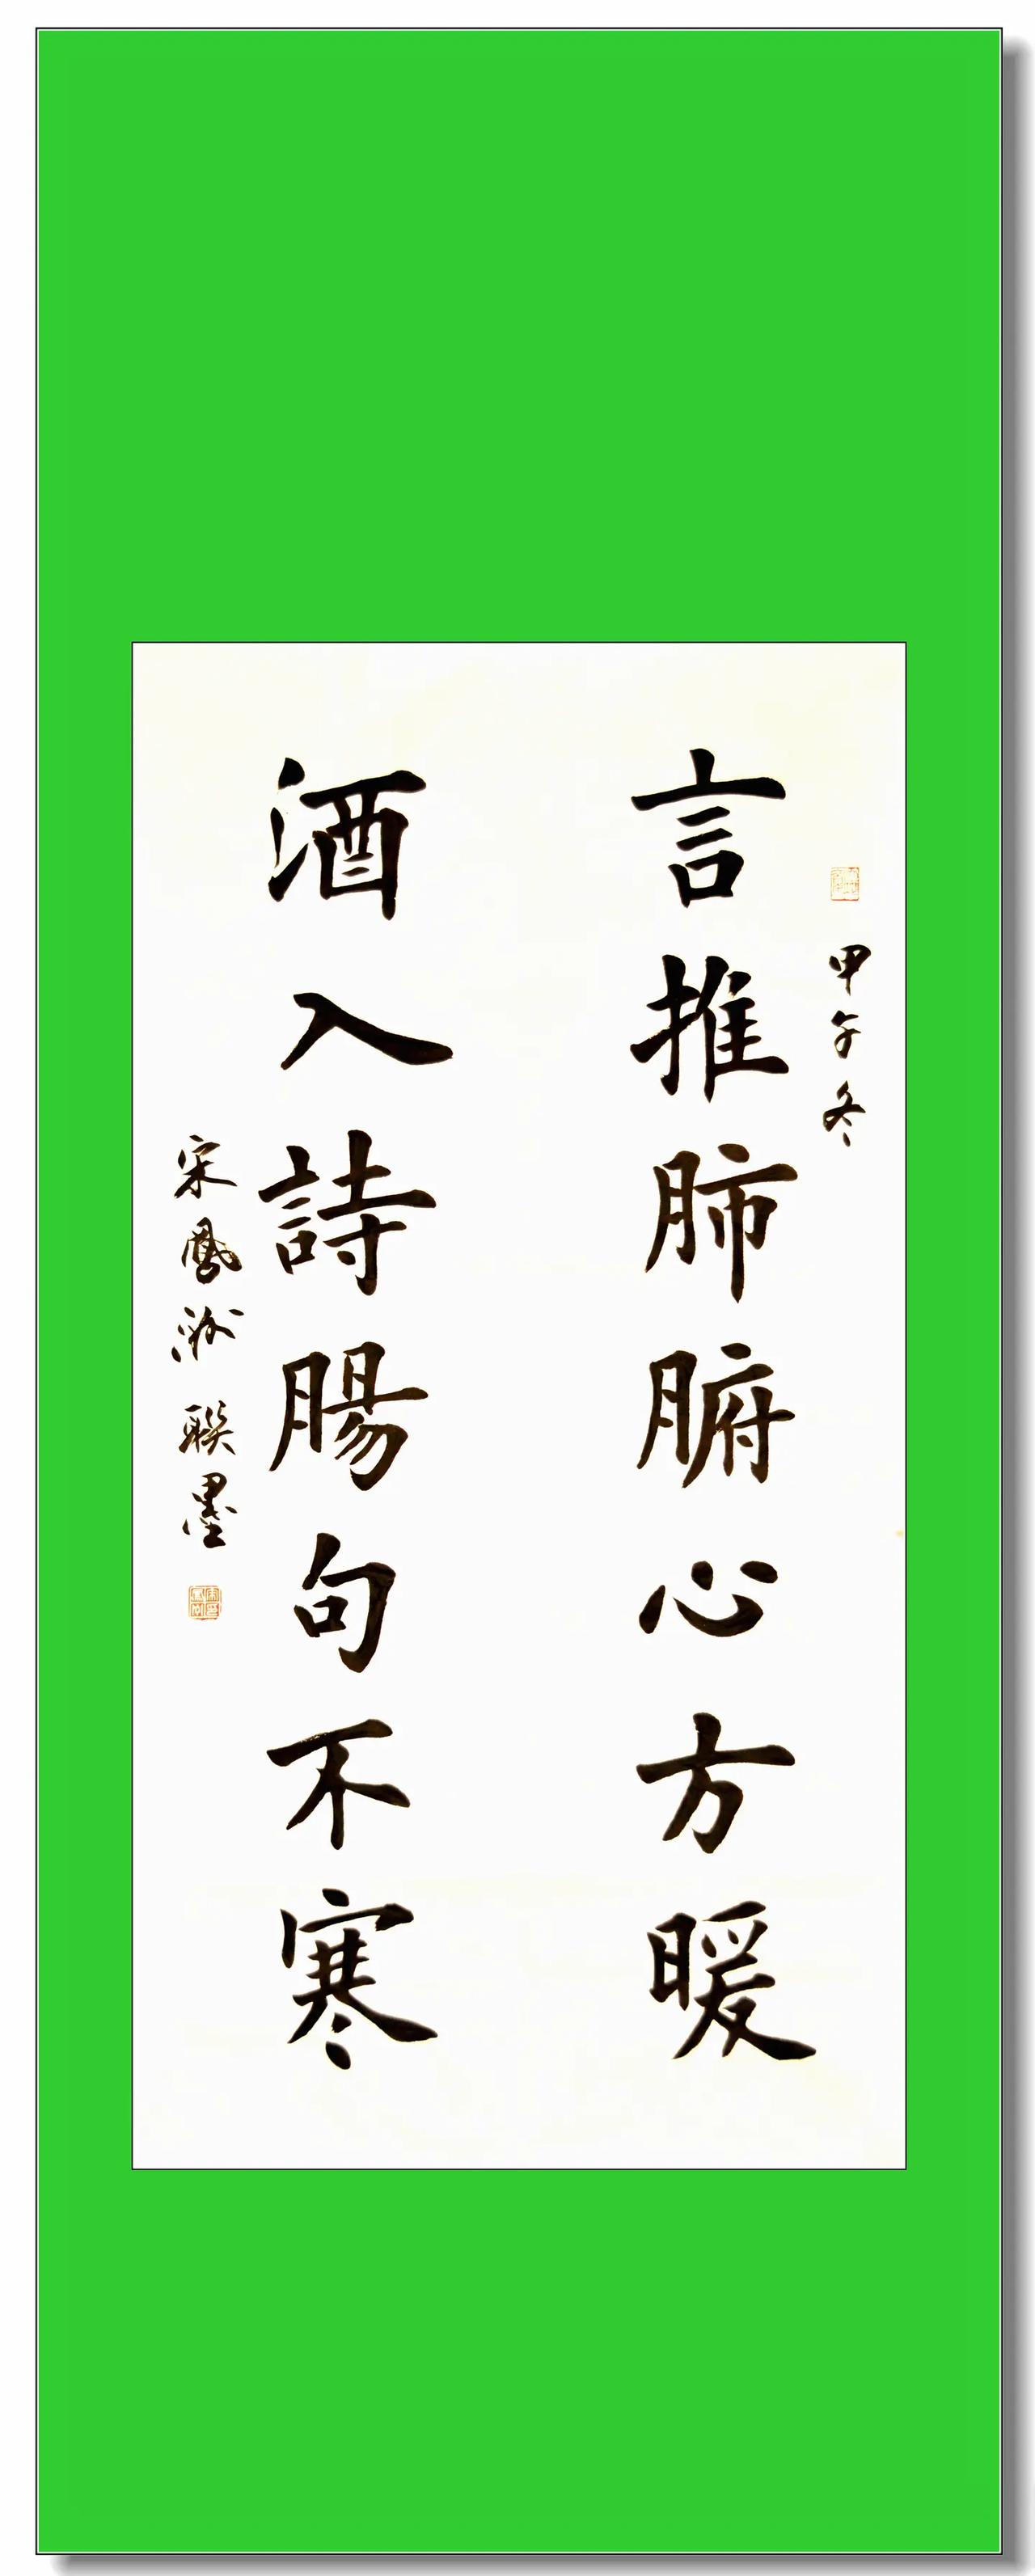 甲午冬
言推肺腑心方暖
酒入詩腸句不寒
宋鳳洲 聯墨